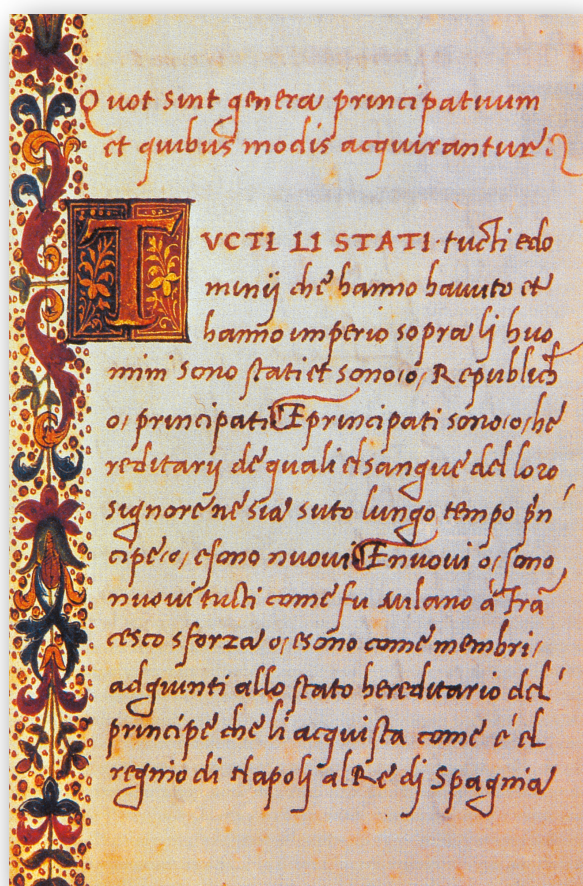 Quot sint genera principatuum
et quibus modis acquirantur.
TVCTI LI STATI tucti e do
minij che hanno havuto et
hanno imperio sopra li huo
mini sono stati et sono, o, Republich
o, principati E principati sono, o, he
reditarij de quali el sangue del loro
signore ne sia suto lungo tempo pn
cipe, o, e sono nuovi E nuovi o, sono
nuovi tutti come fu Milano à Fra
cesco sforza o, e sono come membri,
adgiunti allo stato hereditario del
principe che li acquista come é el
regnio di Napoli al Re di Spagnia